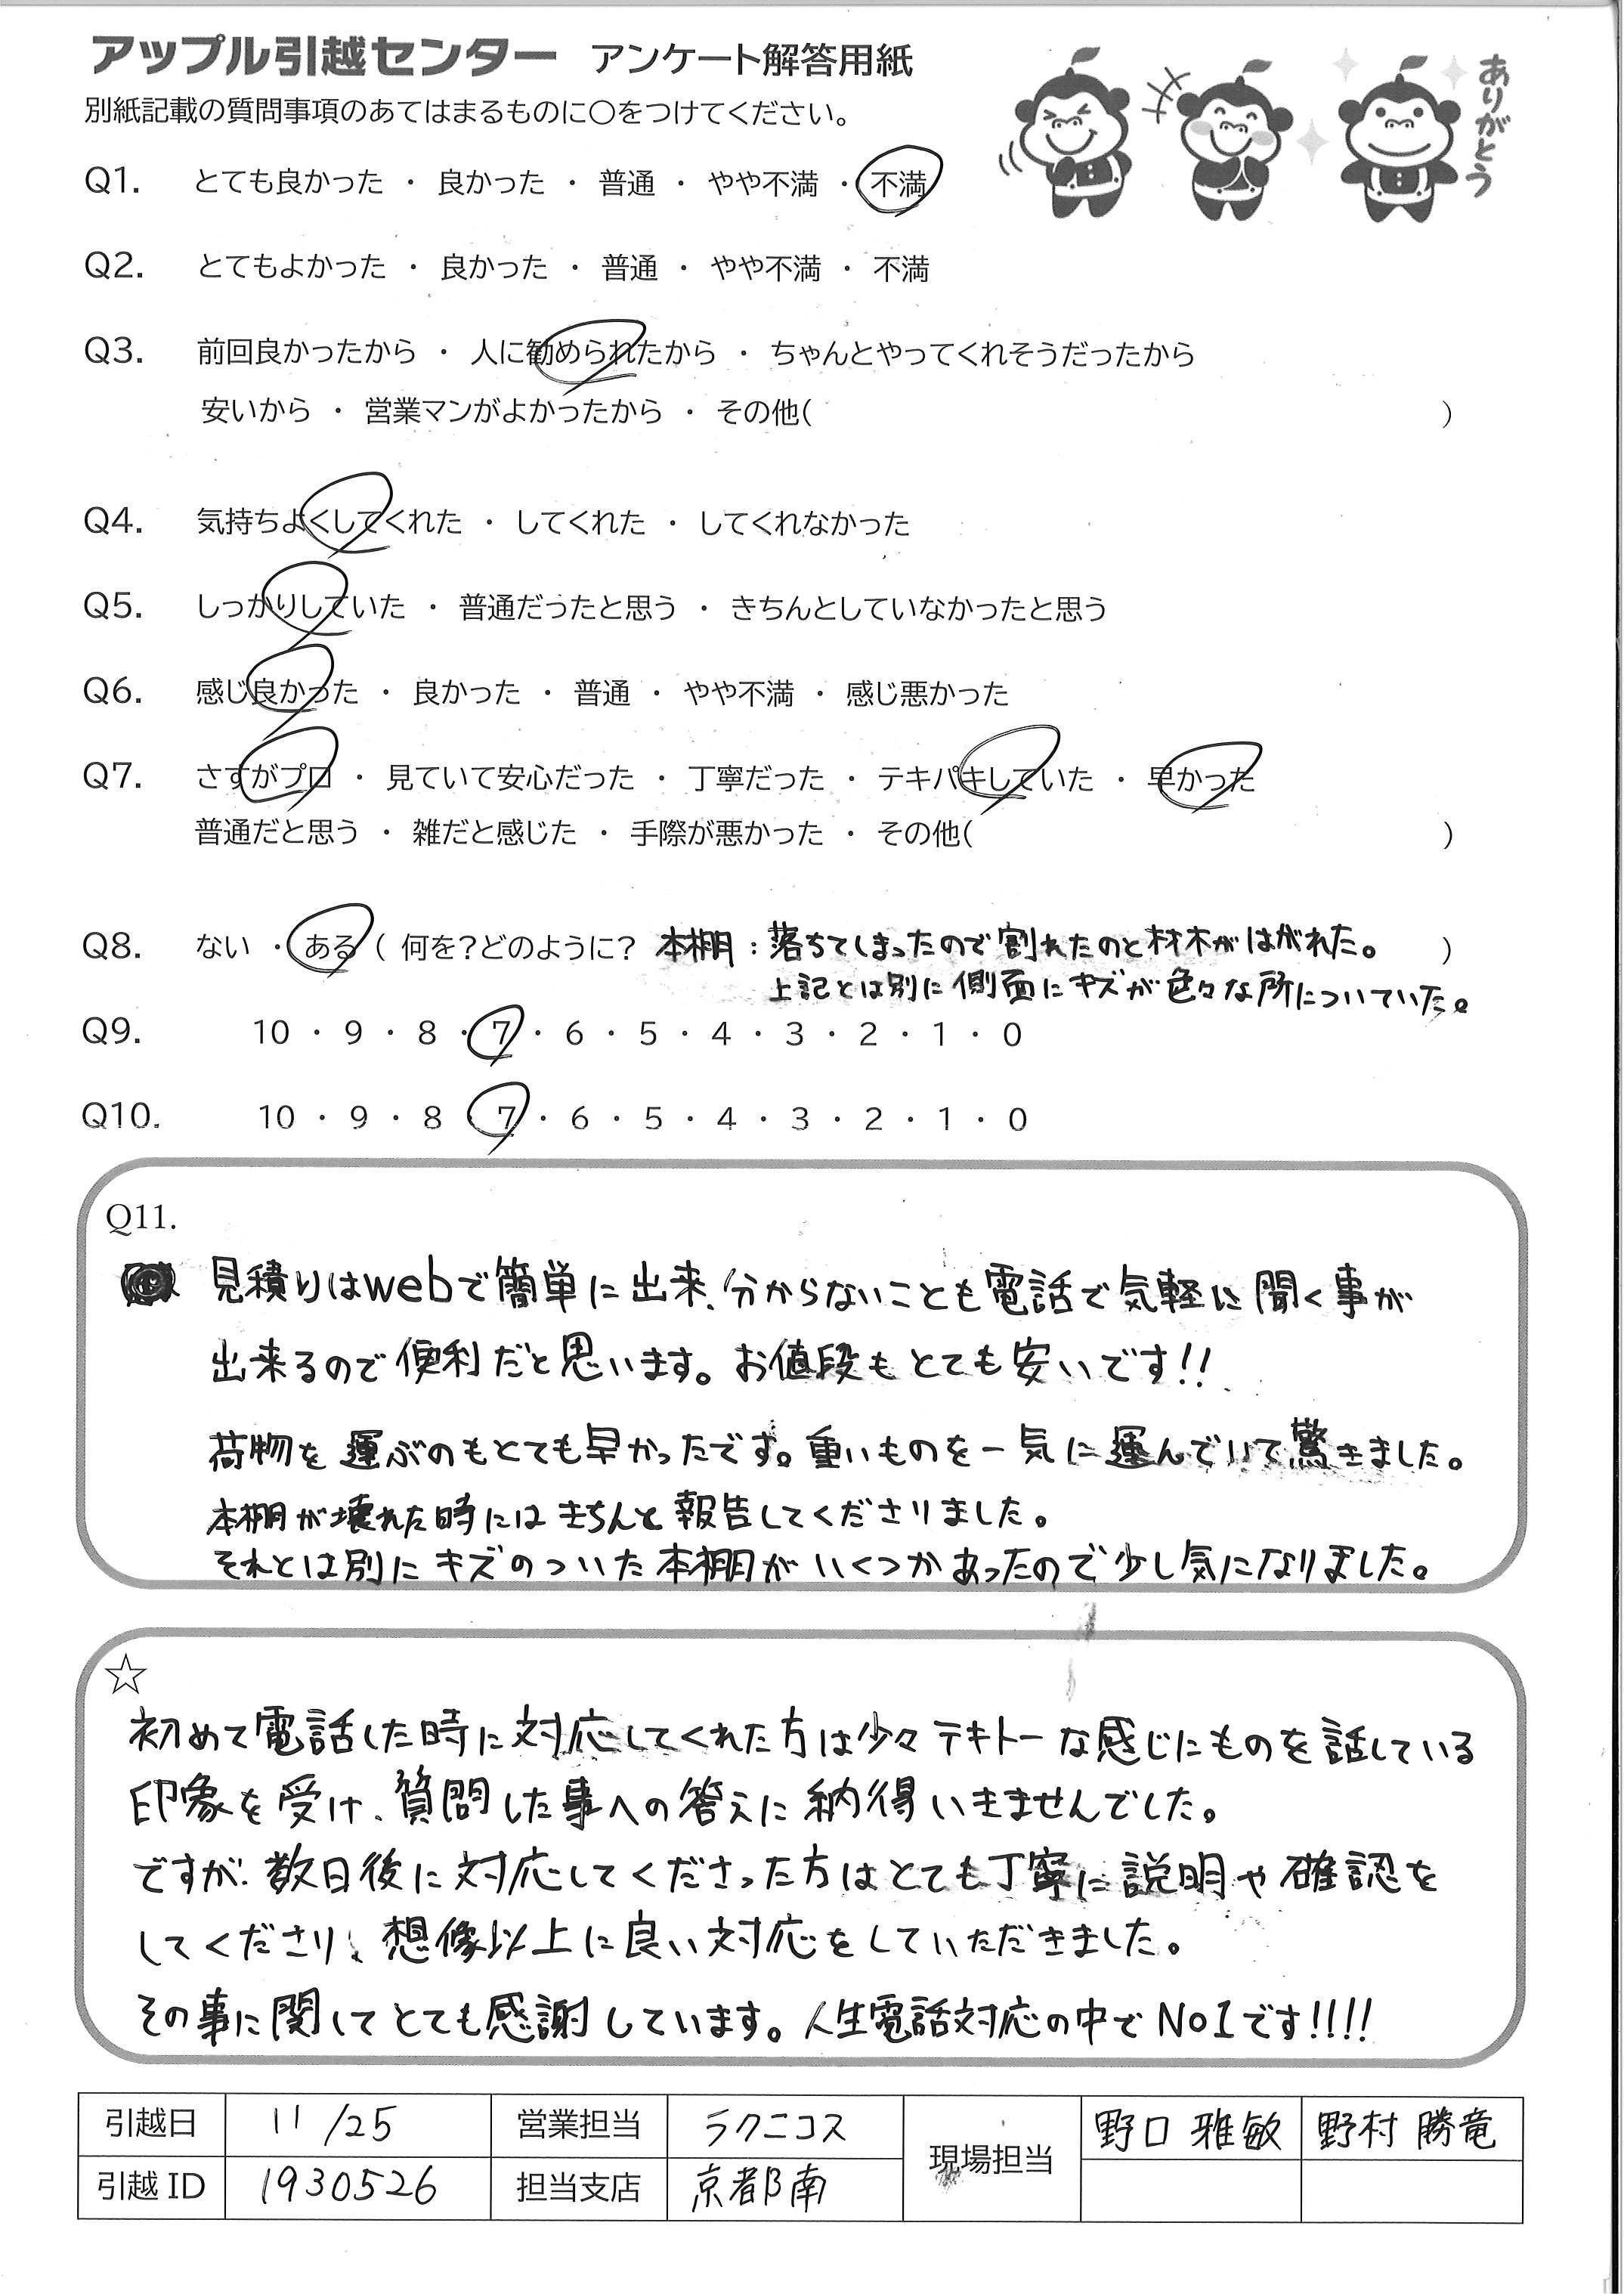 アップル引越センター アンケート解答用紙
ありがとう
別紙記載の質問事項のあてはまるものに○をつけてください。
Q1. とても良かった ・ 良かった ・ 普通 ・ やや不満 ・ 不満
Q2. とてもよかった ・ 良かった ・ 普通 ・ やや不満 ・ 不満
Q3. 前回良かったから ・ 人に勧められたから ・ ちゃんとやってくれそうだったから
安いから ・ 営業マンがよかったから ・ その他( )
Q4. 気持ちよくしてくれた ・ してくれた ・ してくれなかった
Q5. しっかりしていた ・ 普通だったと思う ・ きちんとしていなかったと思う
Q6. 感じ良かった ・ 良かった ・ 普通 ・ やや不満 ・ 感じ悪かった
Q7. さすがプロ ・ 見ていて安心だった ・ 丁寧だった ・ テキパキしていた ・ 早かった
普通だと思う ・ 雑だと感じた ・ 手際が悪かった ・ その他( )
Q8. ない ・ ある ( 何を?どのように? 本棚:落ちてしまったので割れたのと材木がはがれた。 )
上記とは別に側面にキズが色々な所についていた。
Q9. 10 ・ 9 ・ 8 ・ 7 ・ 6 ・ 5 ・ 4 ・ 3 ・ 2 ・ 1 ・ 0
Q10. 10 ・ 9 ・ 8 ・ 7 ・ 6 ・ 5 ・ 4 ・ 3 ・ 2 ・ 1 ・ 0
Q11.
見積りはwebで簡単に出来、分からないことも電話で気軽に聞く事が
出来るので便利だと思います。お値段もとても安いです!!
荷物を運ぶのもとても早かったです。重いものを一気に運んでいて驚きました。
本棚が壊れた時にはきちんと報告してくださりました。
それとは別にキズのついた本棚がいくつかあったので少し気になりました。
☆
初めて電話した時に対応してくれた方は少々テキトーな感じにものを話している
印象を受け、質問した事への答えに納得いきませんでした。
ですが、数日後に対応してくださった方はとても丁寧に説明や確認を
してくださり、想像以上に良い対応をしていただきました。
その事に関してとても感謝しています。人生電話対応の中でNo1です!!!!
引越日 11/25 営業担当 ラクニコス 現場担当 野口 雅敏 野村 勝竜
引越ID 1930526 担当支店 京都南